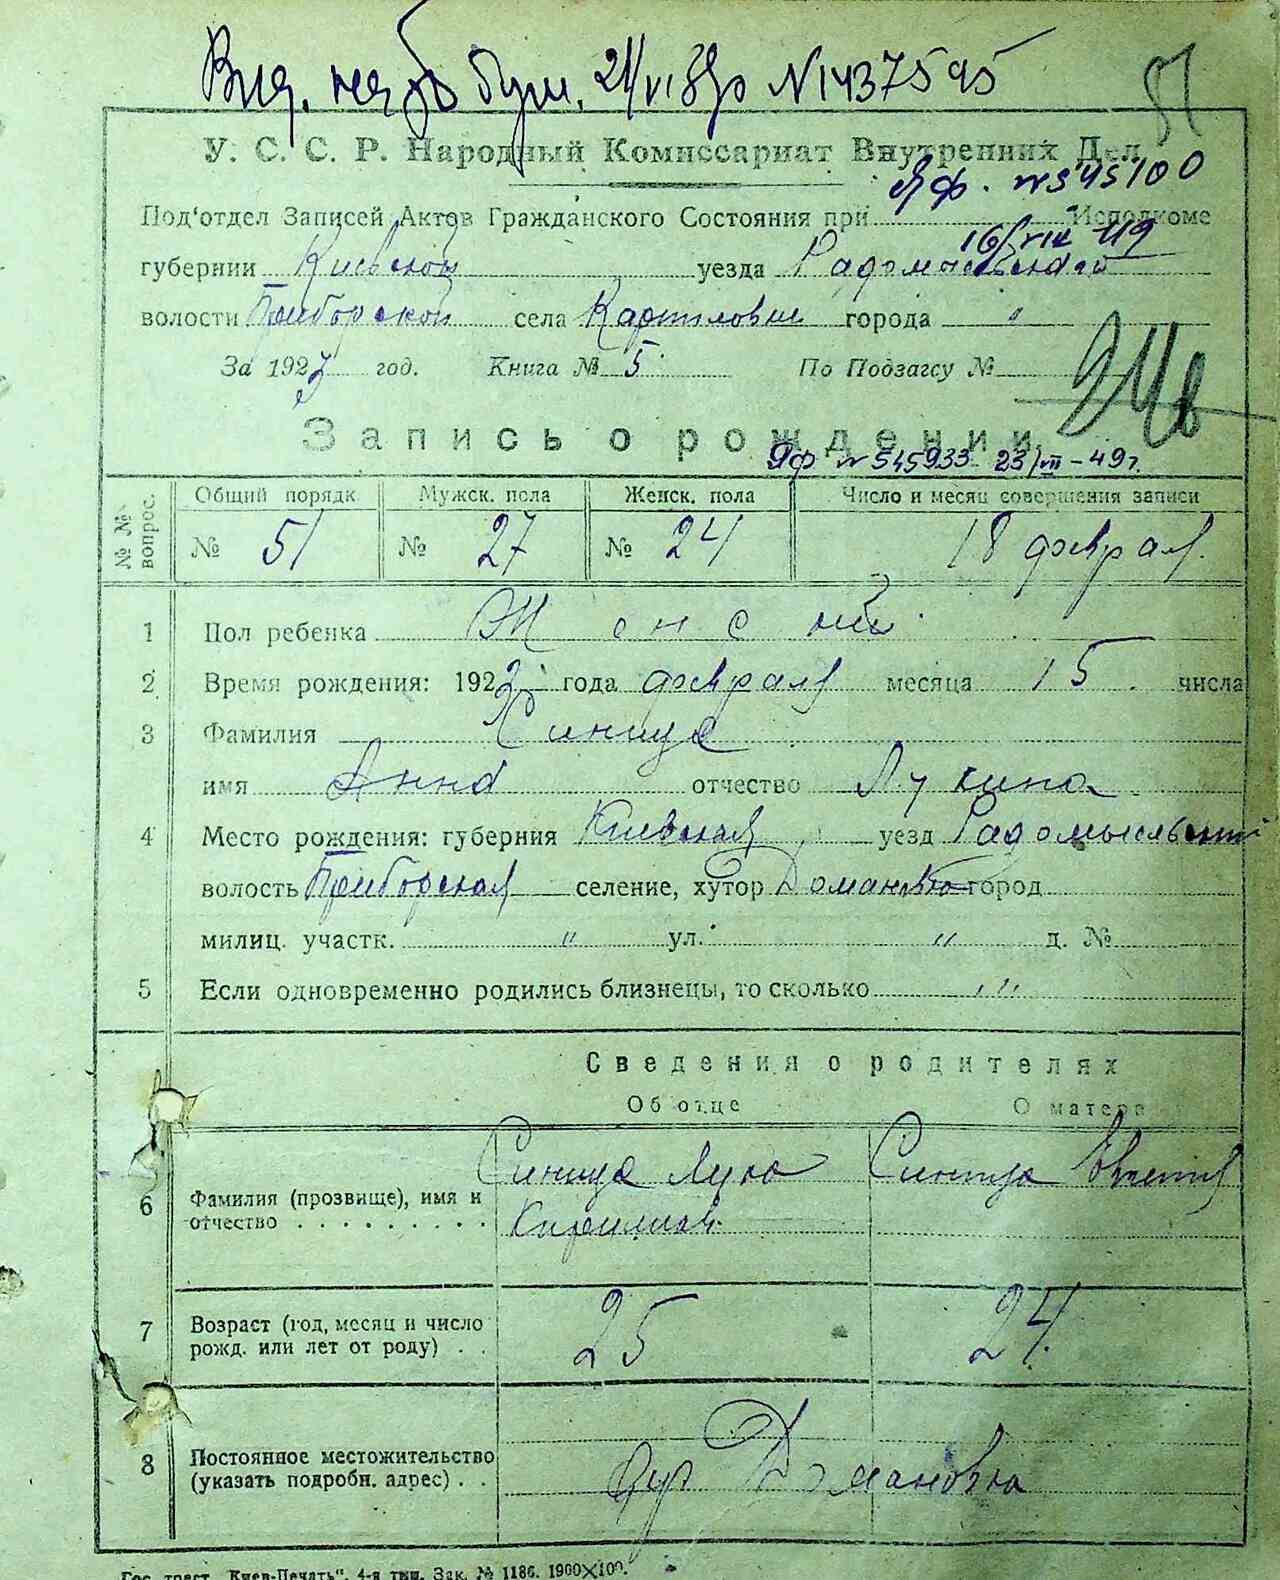 У. С. С. Р. Народный Комиссариат Внутренних Дел
ЯФ. № 545100
Под'отдел Записей Актов Гражданского Состояния при Исполкоме
16/VII 49
губернии Киевской уезда Радомысльской
волости Приборской села Карпиловки города "
За 1923 год. Книга № 5 По Подзагсу №
Запись о рождении
ЯФ № 545933 23/VII-49 г.
№ № вопрос.
Общий порядк Мужск. пола Женск. пола Число и месяц совершения записи
№ 51 № 27 № 24 18 феврал
1 Пол ребенка Женский
2 Время рождения: 1923 года февраля месяца 15 числа
3 Фамилия Синица
имя Анна отчество Лукина
4 Место рождения: губерния Киевская уезд Радомысльский
волость Приборская селение, хутор Домановка город
милиц. участк. " ул. " д. №
5 Если одновременно родились близнецы, то сколько "
Сведения о родителях
Об отце О матери
Синица Лука Синица
6 Фамилия (прозвище), имя и отчество
7 Возраст (год, месяц и число рожд. или лет от роду) 25 24
8 Постоянное местожительство (указать подробн. адрес) хут Домановка
Гос. трест „Киев-Печать“. 4-я тип. Зак. № 1186. 1900×100.